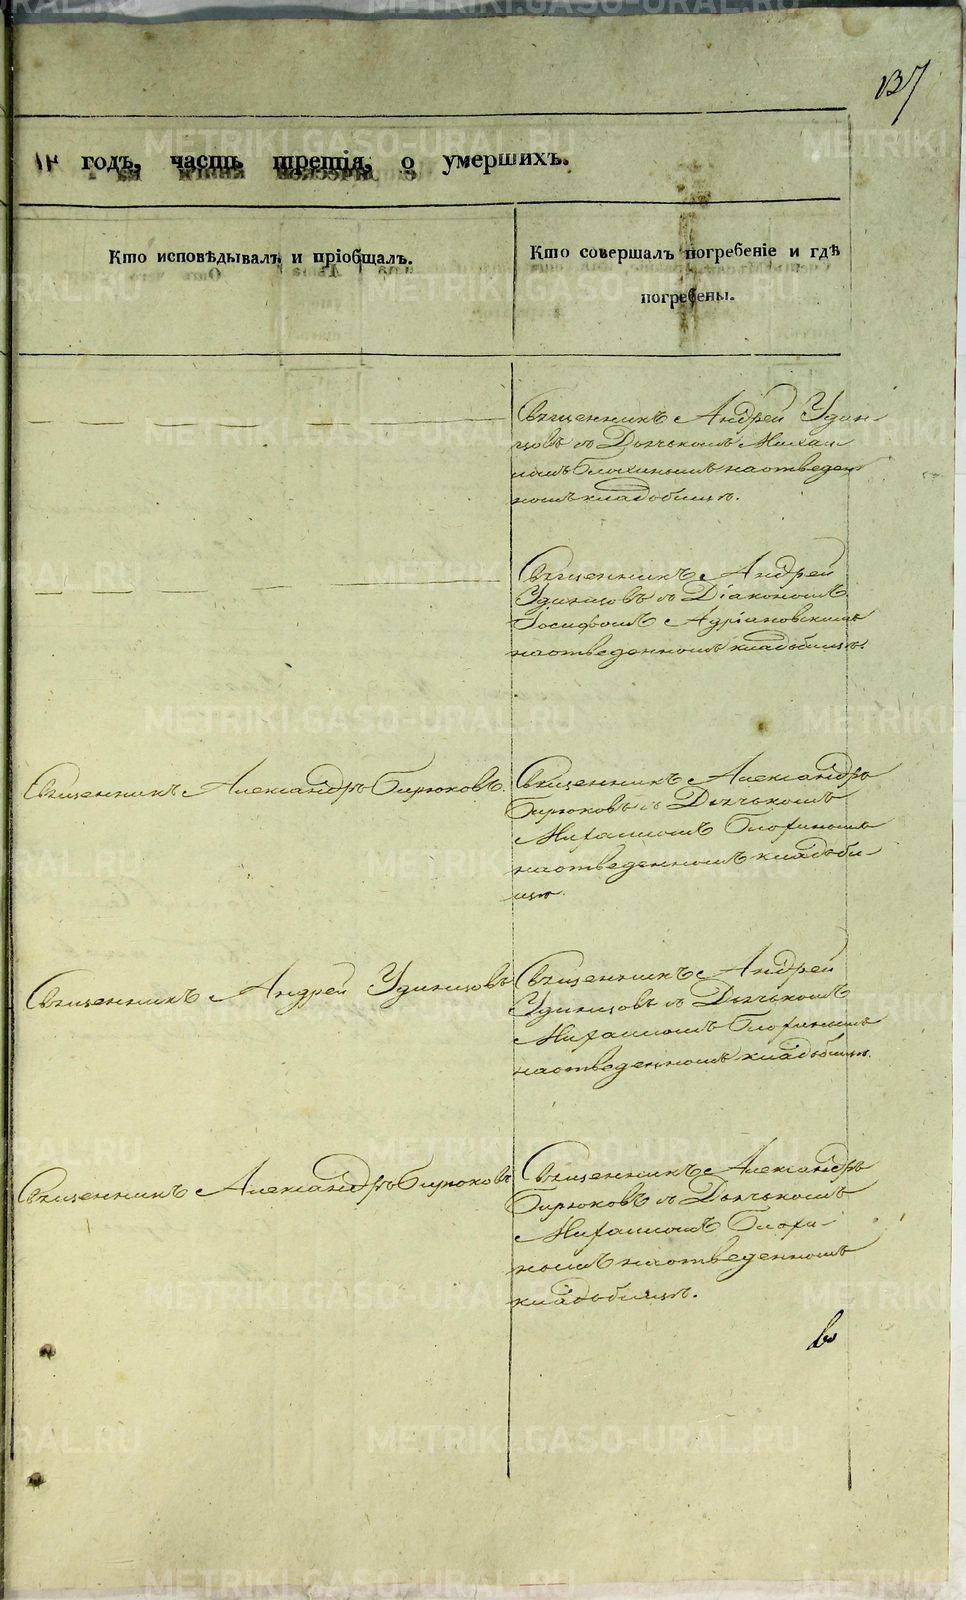 137
годъ, часть третія, о умершихъ.
Кто исповѣдывалъ и пріобщалъ.
Кто совершалъ погребеніе и гдѣ
погребены.
Священникъ Андрей Удин-
цовъ съ Дьячкомъ Михаи
ломъ Блохинымъ на отведен
номъ кладбищѣ.
Священникъ Андрей
Удинцовъ съ Діакономъ
Іосифомъ Адріановскимъ
на отведенномъ кладбищѣ.
Священникъ Александръ Бирюковъ.
Священникъ Александръ
Бирюковъ съ Дьячкомъ
Михаиломъ Блохинымъ
на отведенномъ кладби-
щѣ.
Священникъ Андрей Удинцовъ
Священникъ Андрей
Удинцовъ съ Дьячкомъ
Михаиломъ Блохинымъ
на отведенномъ кладбищѣ.
Священникъ Александръ Бирюковъ
Священникъ Александръ
Бирюковъ съ Дьячкомъ
Михаиломъ Блохи-
нымъ на отведенномъ
кладбищѣ.
METRIKI.GASO-URAL.RU